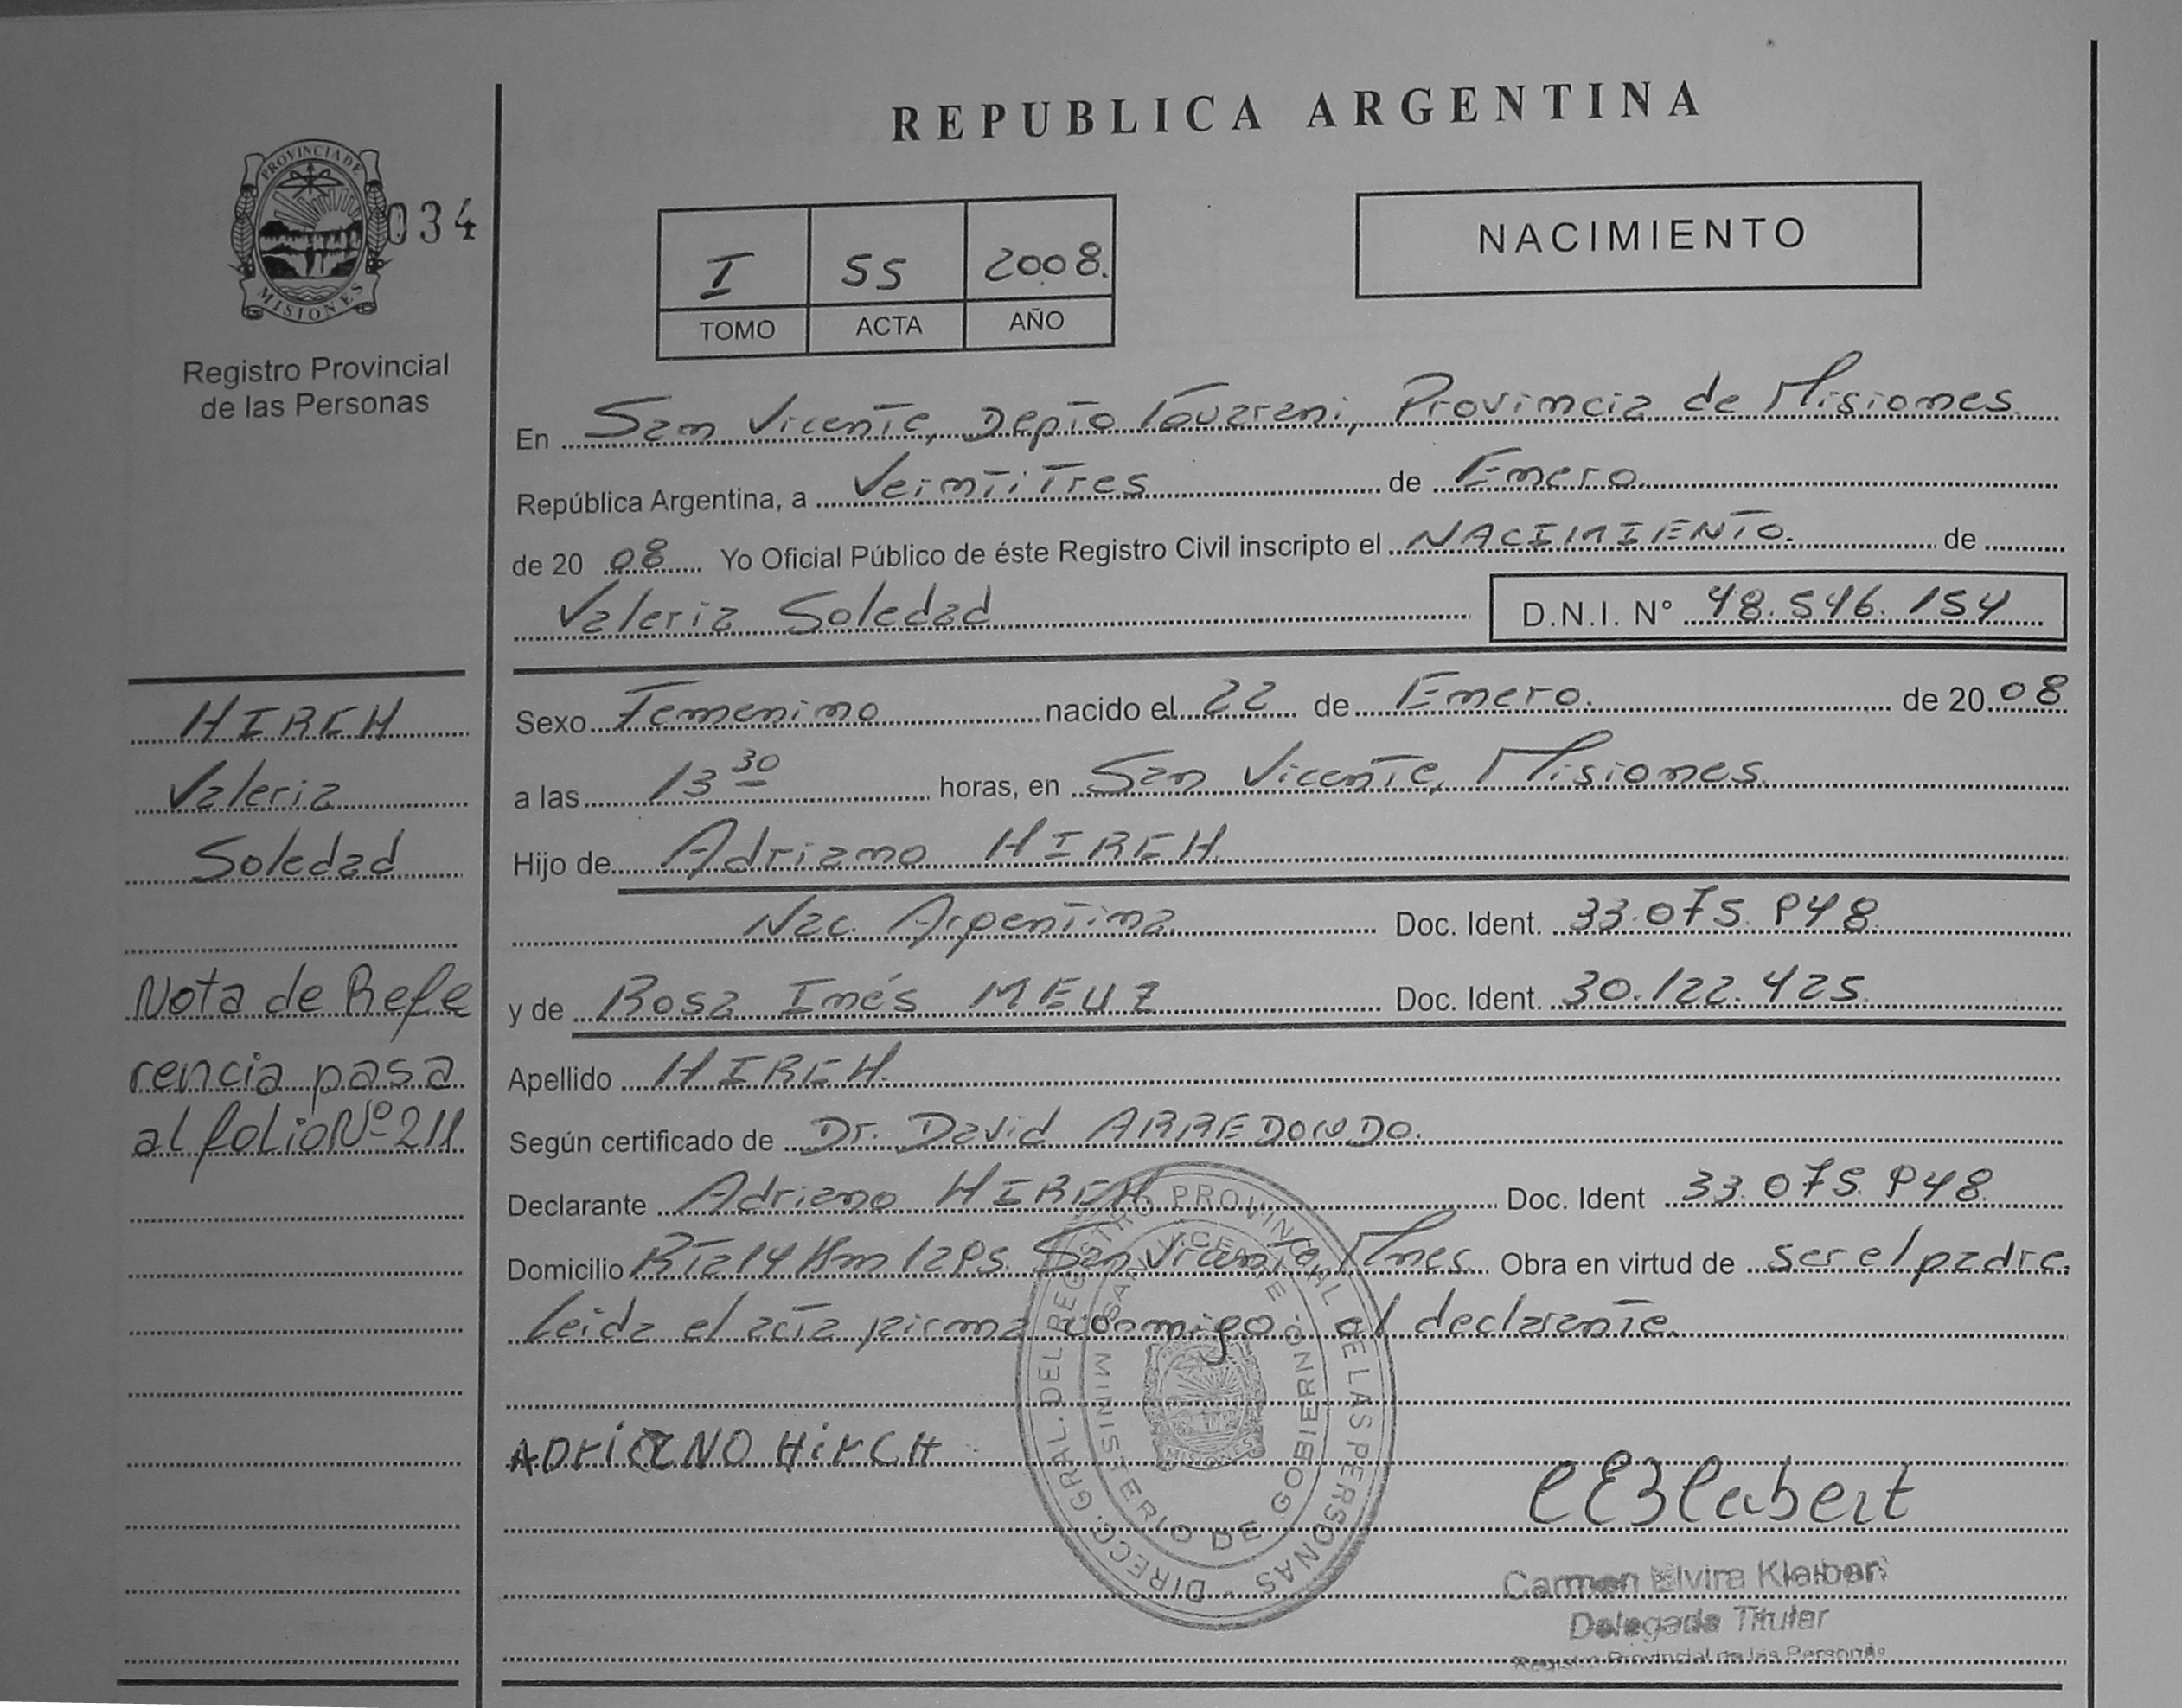 REPUBLICA ARGENTINA
PROVINCIA DE MISIONES
034
Registro Provincial
de las Personas
I 55 2008.
TOMO ACTA AÑO
NACIMIENTO
En San Vicente, Depto Guarani, Provincia de Misiones.
República Argentina, a Veintitres de Enero.
de 20 08 Yo Oficial Público de éste Registro Civil inscripto el NACIMIENTO. de
Valeria Soledad D.N.I. N° 48.546.154
HIRCH
Valeria
Soledad
Nota de Refe
rencia pasa
al folio Nº 211
Sexo Femenino nacido el 22 de Enero. de 20 08
a las 13 30 horas, en San Vicente, Misiones.
Hijo de Adriano HIRCH.
Nac. Argentina. Doc. Ident. 33.075.948.
y de Rosa Inés MEUZ Doc. Ident. 30.122.425.
Apellido HIRCH.
Según certificado de Dr. David ARREDONDO.
Declarante Adriano HIRCH Doc. Ident 33.075.948.
Domicilio Rta 14 Km 1295. San Vicente, Mnes. Obra en virtud de ser el padre.
Leida el acta firma conmigo el declarante.
ADriaNO HirCH
DIRECC. GRAL. DEL REGISTRO PROVINCIAL DE LAS PERSONAS
SAN VICENTE
MINISTERIO DE GOBIERNO
MISIONES
Carmen Elvira Klabert
Delegada Titular
Registro Provincial de las Personas